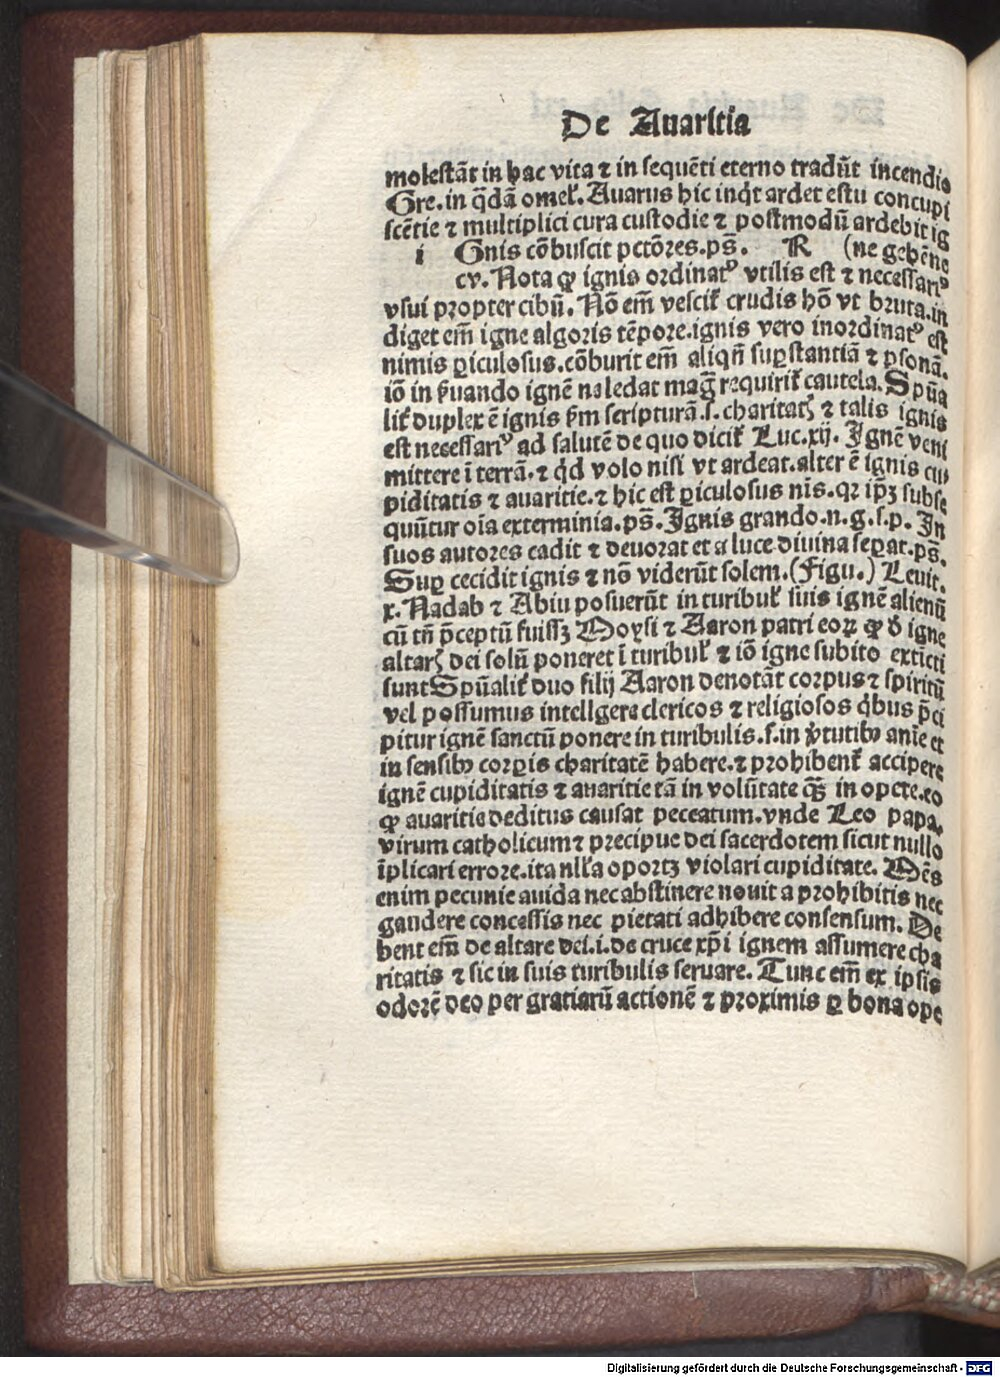 De Auaritia
molestãt in hac vita ⁊ in sequẽti eterno tradũt incendio
Gre. in q̃dã omeł. Auarus hic inq̇t ardet estu concupi
scẽtie ⁊ multiplici cura custodie ⁊ postmodũ ardebit ig
i Gnis cõbuscit pctõres. ps̃. R (ne gehẽne
cv. Nota ꝙ ignis ordinatꝰ vtilis est ⁊ necessariꝰ
vsui propter cibũ. Nõ em̃ vescit̃ crudis hõ vt bruta. in
diget em̃ igne algoris tẽpore. ignis vero inordinatꝰ est
nimis ꝑiculosus. cõburit em̃ aliqñ sup̱stantiã ⁊ ꝑsonã.
iõ in ẜuando ignẽ ne ledat mag̃ requirit̃ cautela. Spũa
lit̃ duplex ẽ ignis ẜm scripturã. s. charitatꝭ ⁊ talis ignis
est necessariꝰ ad salutẽ de quo dicit̃ Luc. xij. Ignẽ veni
mittere ĩ terrã. ⁊ q̇d volo nisi vt ardeat. alter ẽ ignis cu⸗
piditatis ⁊ auaritie. ⁊ hic est ꝑiculosus nĩs. qꝛ ip̃ꝫ subse
quũtur oĩa exterminia. ps̃. Ignis grando. n. g. s. p. In
suos autores cadit ⁊ deuorat et a luce diuina seꝑat. ps̃.
Suꝑ cecidit ignis ⁊ nõ viderũt solem. (Figu.) Leuit.
x. Nadab ⁊ Abiu posuerũt in turibuł suis ignẽ alienũ
cũ tñ p̃ceptũ fuissꝫ Moysi ⁊ Aaron patri eoꝝ ꝙ ð igne
altarꝭ dei solũ poneret ĩ turibuł ⁊ iõ igne subito extĩcti
sunt Spũalit̃ duo filij Aaron denotãt corpus ⁊ spiritũ
vel possumus intelligere clericos ⁊ religiosos q̇bus p̃ci
pitur ignẽ sanctũ ponere in turibulis. s. in v̓tutibꝫ anĩe et
in sensibꝫ corꝑis charitatẽ habere. ⁊ prohibent̃ accipere
ignẽ cupiditatis ⁊ auaritie tã in volũtate qͣ̃ꝫ in opere. eo
ꝙ auaritie deditus causat peccatum. vnde Leo papa.
virum catholicum ⁊ precipue dei sacerdotem sicut nullo
ĩplicari errore. ita nłla oportꝫ violari cupiditate. Mẽs
enim pecunie auida nec abstinere nouit a prohibitis nec
gaudere concessis nec pietati adhibere consensum. De
bent em̃ de altare dei. i. de cruce xp̃i ignem assumere cha
ritatis ⁊ sic in suis turibulis seruare. Tunc em̃ ex ipsis
odorẽ deo per gratiarũ actionẽ ⁊ proximis ꝑ bona ope
Digitalisierung gefördert durch die Deutsche Forschungsgemeinschaft - DFG